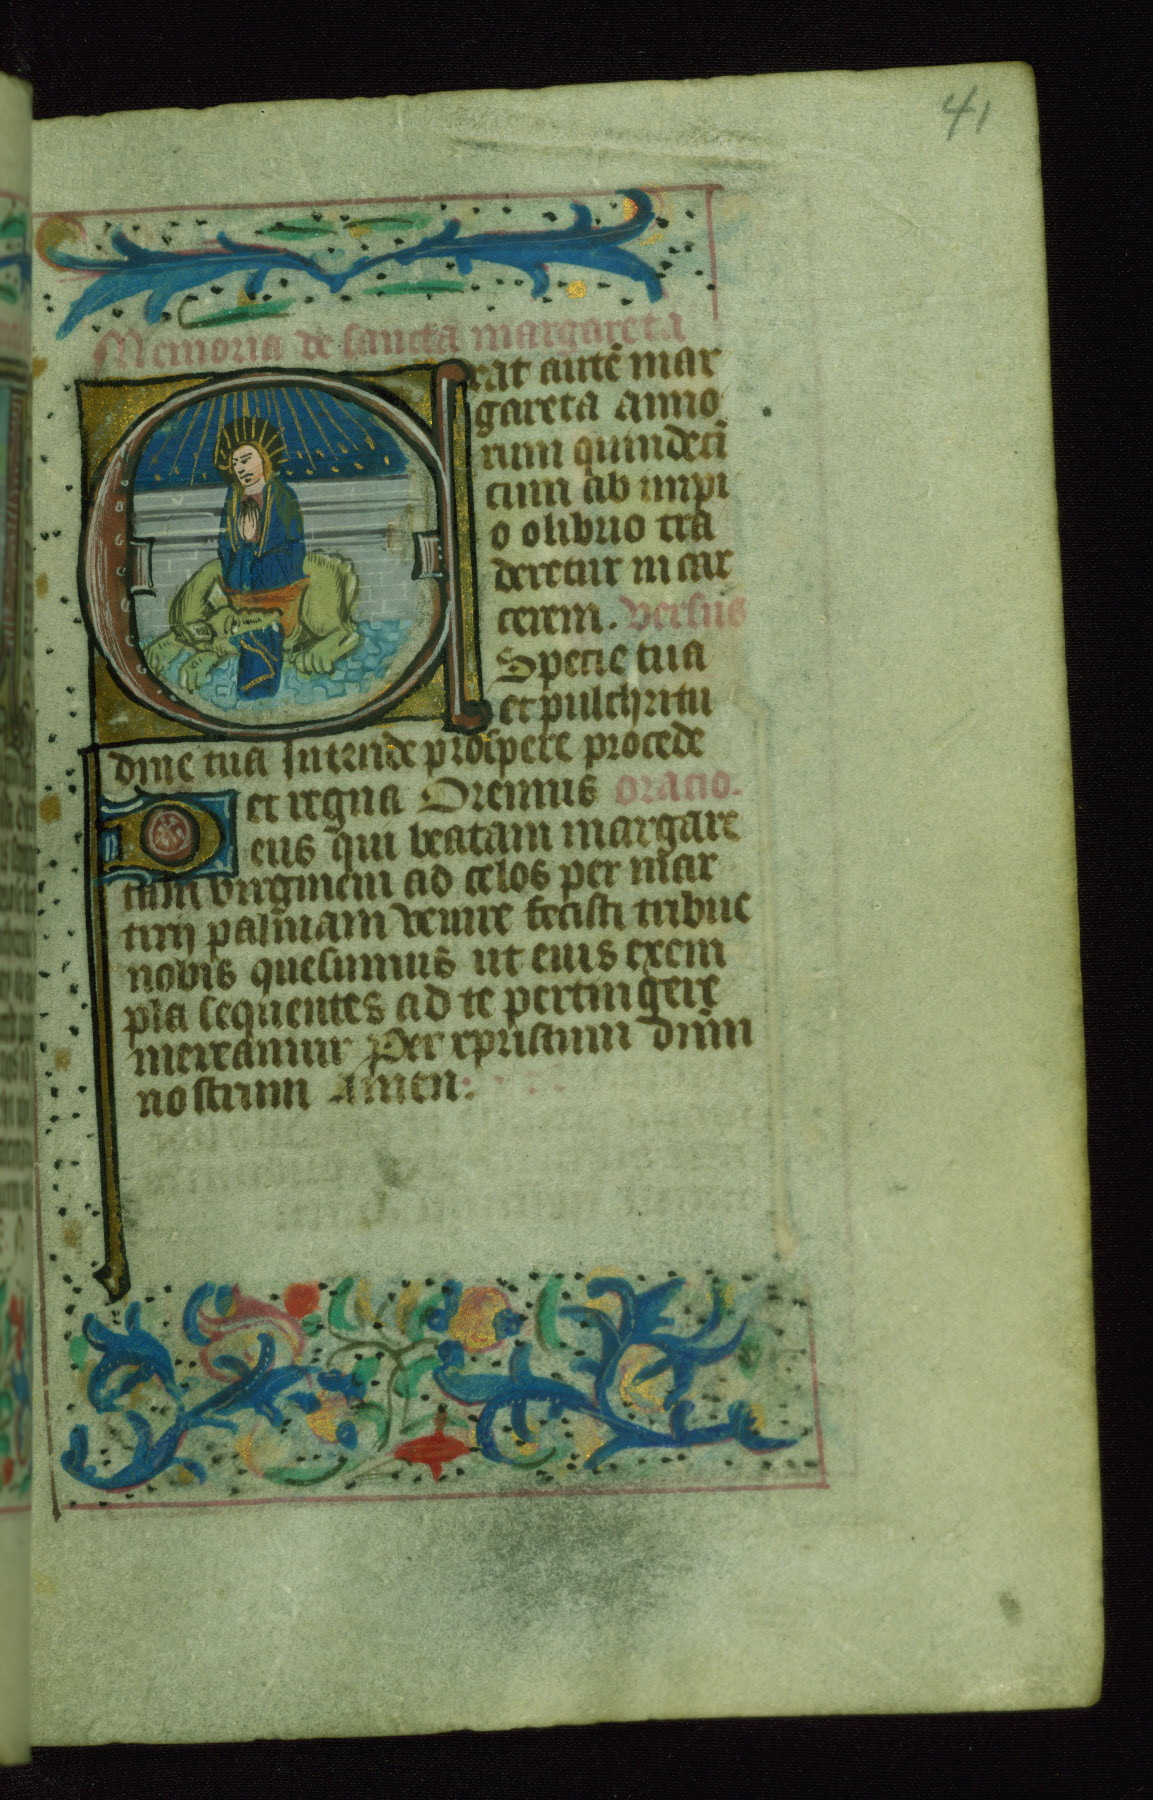 41
Memoria de sancta margareta
Erat autē mar
gareta anno
rum quindeci
cum ab impi
o olibrio tra
deretur in car
cerem. versus
Specie tua
et pulchritu
dine tua Intende prospere procede
et regna Oremus oracio.
Deus qui beatam margare
tam virginem ad celos per mar
tirij palmam venire fecisti tribue
nobis quesumus ut euis exem
pla sequentes ad te pertingere
mereamur Per xpristum dnm
nostrum Amen: